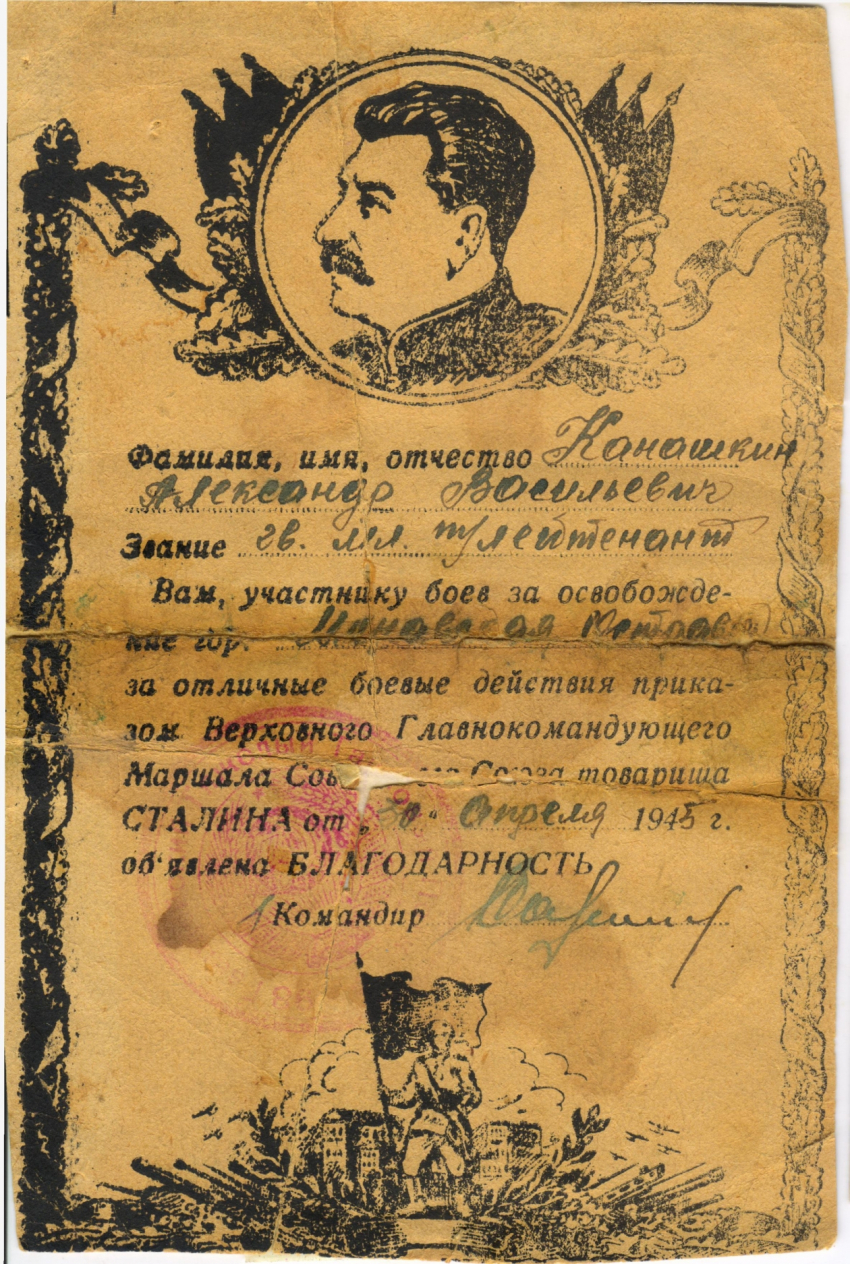 Фамилия, имя, отчество Канашкин
Александр Васильевич
Звание гв. мл. т/лейтенант
Вам, участнику боев за освобожде-
ние гор. Моравская Острава
за отличные боевые действия прика-
зом Верховного Главнокомандующего
Маршала Сов Союза товарища
СТАЛИНА от „30" апреля 1945 г.
об'явлена БЛАГОДАРНОСТЬ
Командир